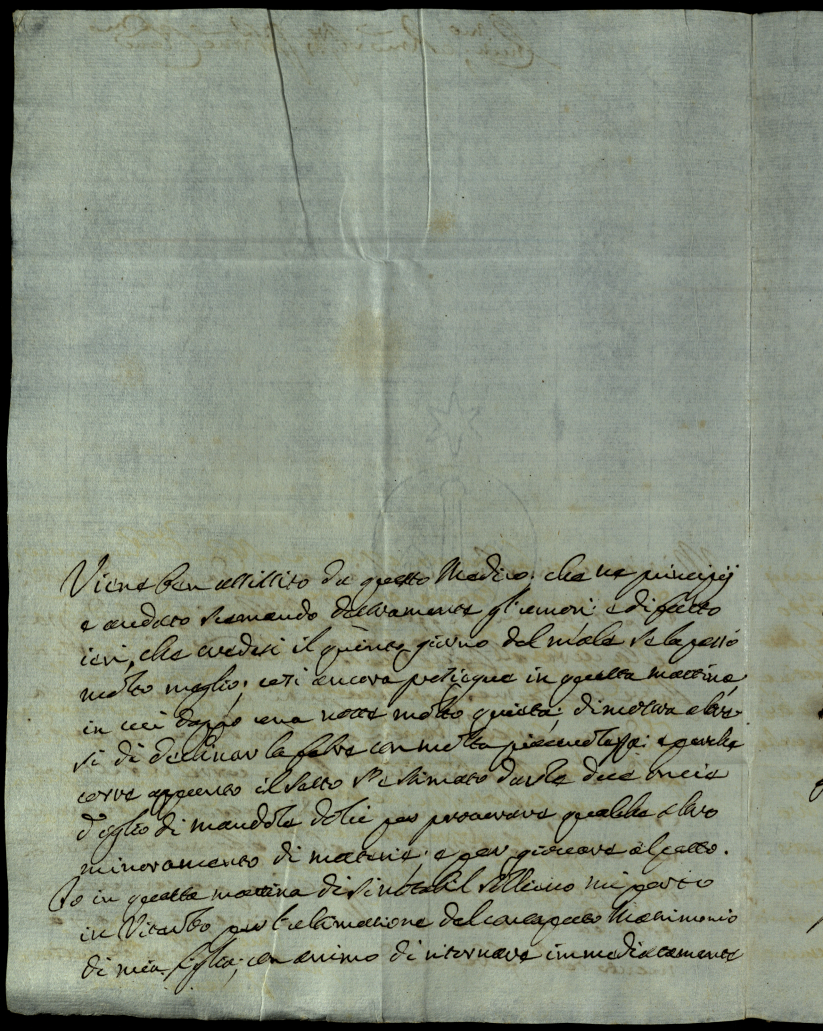 Viene ben assistito da questo Medico, che ne principij
e andato scemando destramente gl'umori: e di fatto
ieri, che credesi il quinto giorno del male se la passò
molto meglio; così ancora prosiegue in questa mattina,
in cui doppo una notte molto quieta, dimostra altre-
si di declinar la febre con molta piacevolezza: e perche
corre appunto il sesto s'è stimato darle due oncie
d'oglio di mandole dolci per procurare qualche altro
minoramento di materie, e per giovare al petto.
Io in questa mattina di sollievo mi porto
in Viterbo per l'ultimazione del Matrimonio
di mia figlia, con animo di ritornare immediatamente